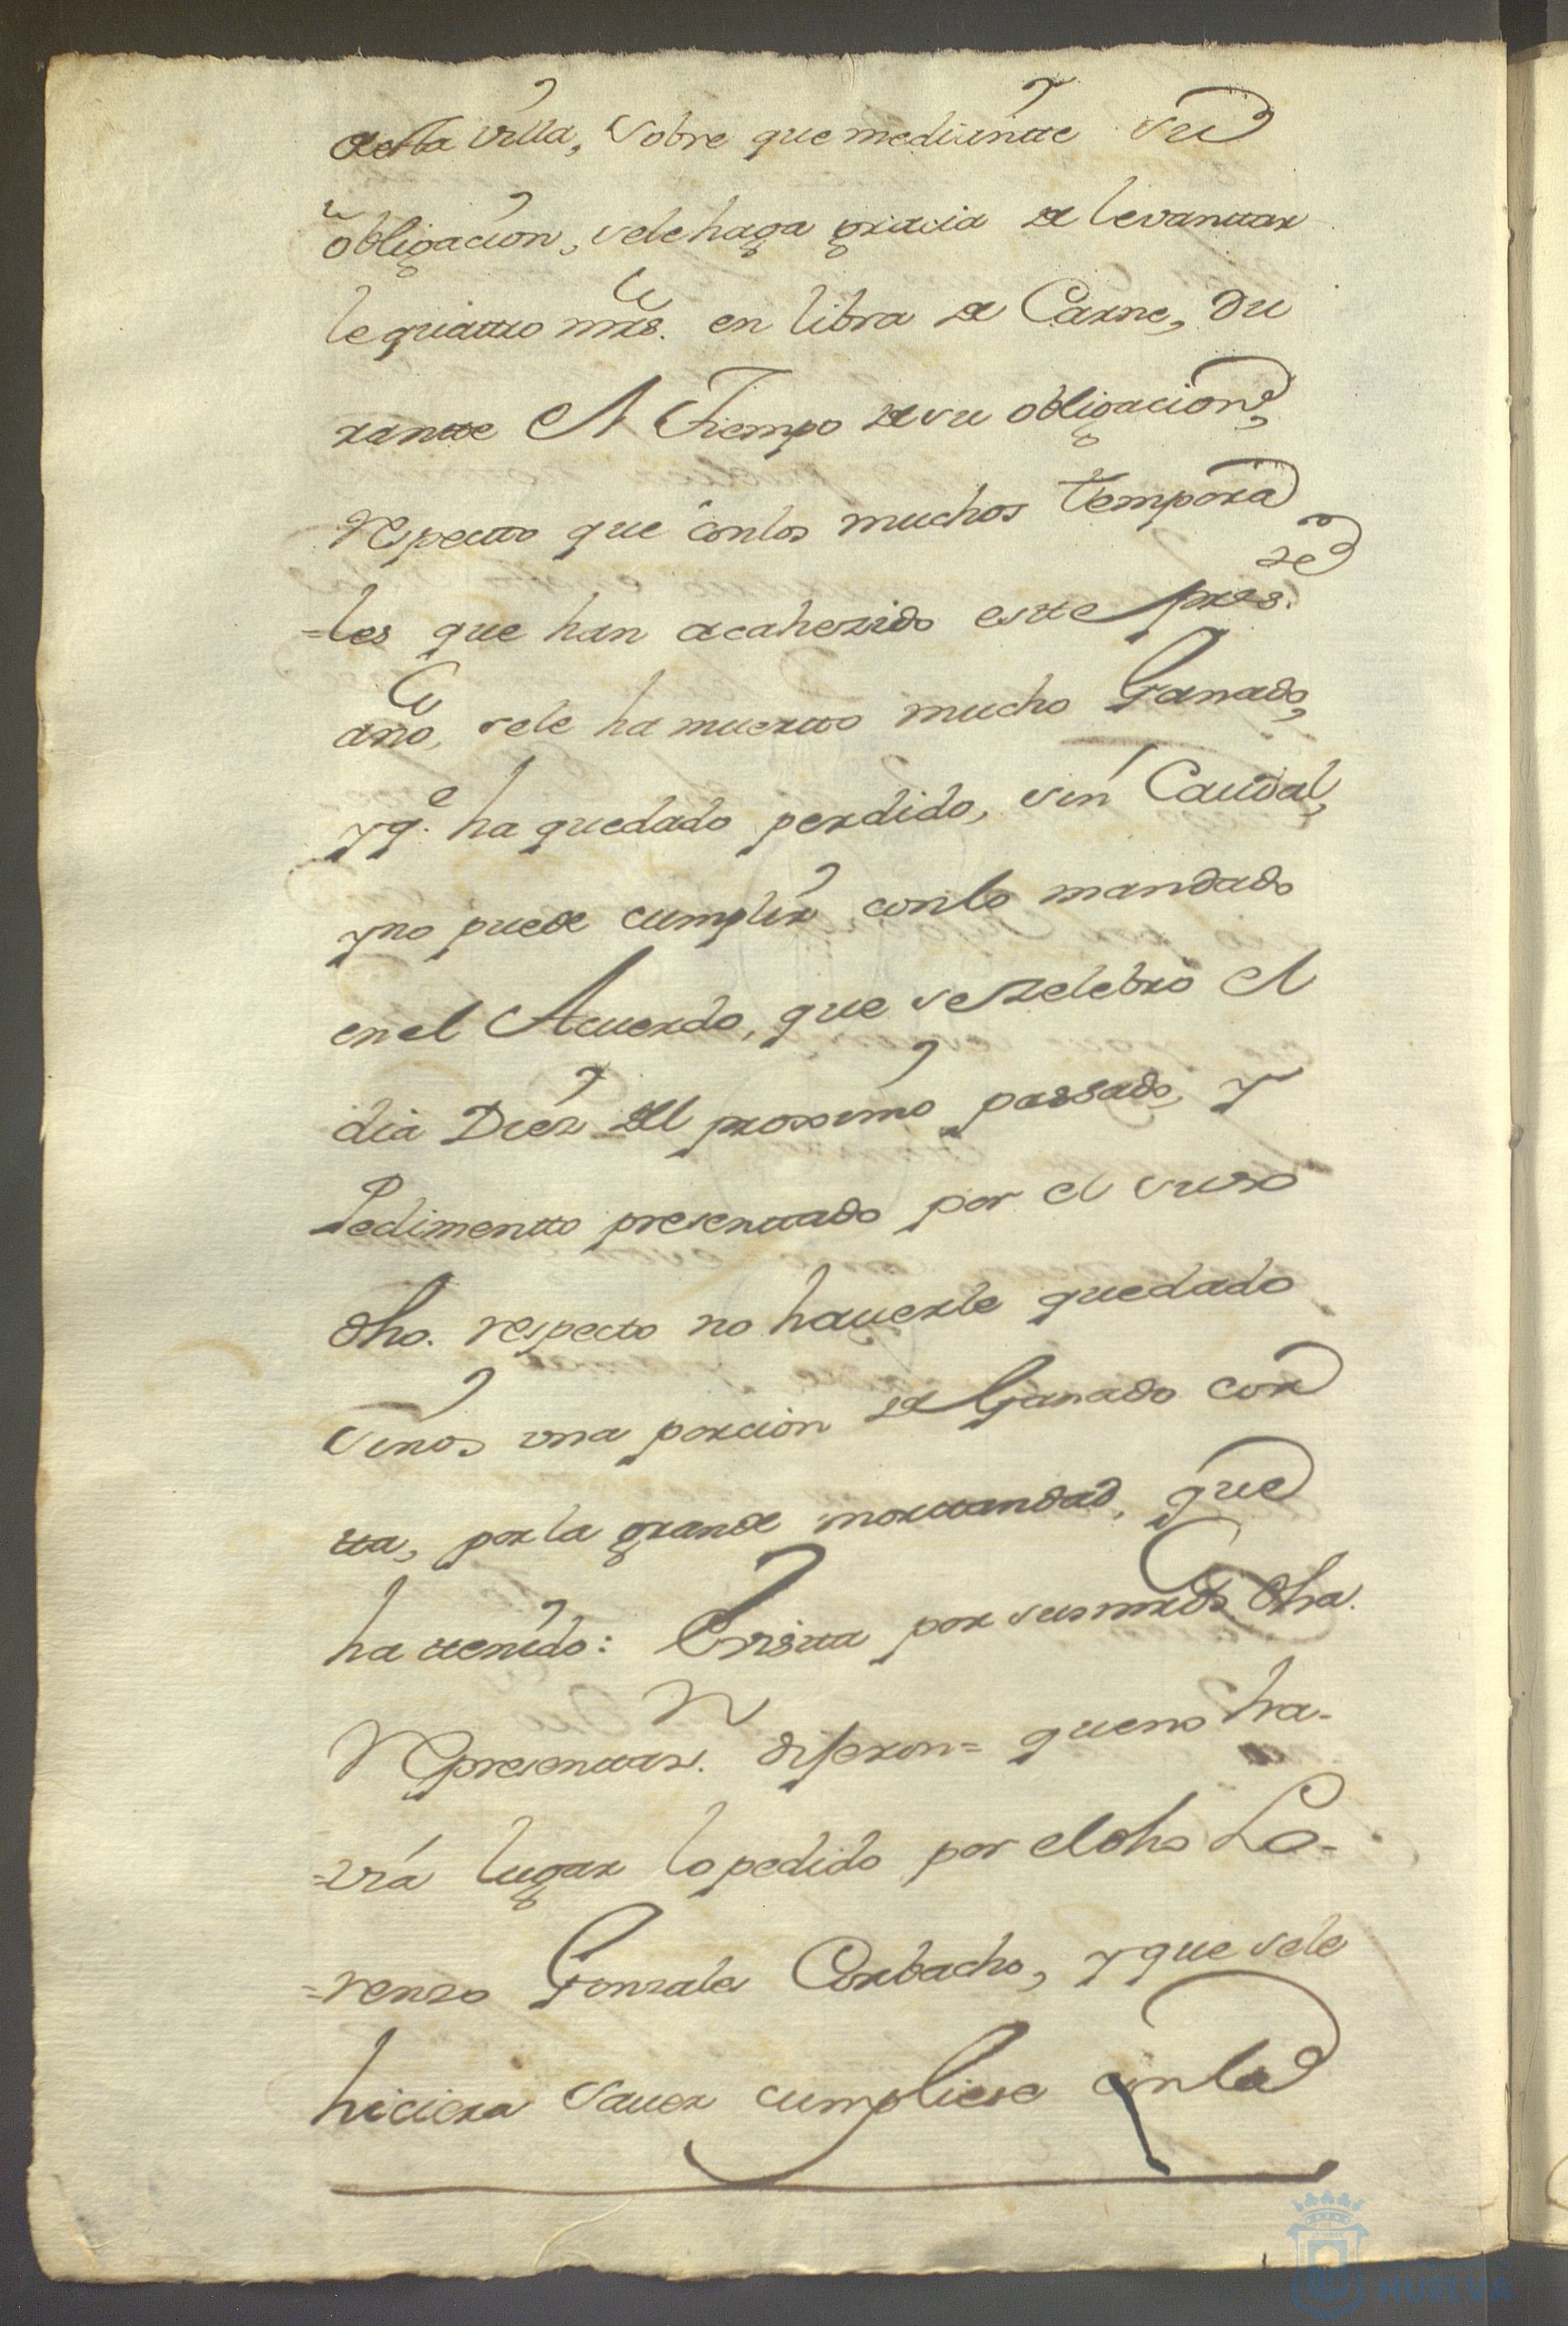 desta villa, sobre que mediantte su
obligacion, sele haga gracia de levanttar
le quattro mrs. en libra de Carne, du
rantte el Tiempo de su obligacion,
respectto que con los muchos Tempora
=les que han acahezido estte press.te
año, sele ha muertto mucho Ganado,
y q.e ha quedado perdido, sin Caudal,
y no puede cumplir con lo mandado
en el Acuerdo, que se zelebro el
dia Diez del proximo passado, y
Pedimentto presenttado por el suso
dho. respecto no hauerle quedado
sino una porcion de Ganado cor
tta, por la grande morttandad, que
ha ttenido: Vistta por sus mrds. dha.
Representtaz.n dijeron= que no ha-
=vrá lugar lo pedido por el dho Lo-
=renzo Gonzales Corbacho, y que sele
hiciera sauer cumpliese con la
HUELVA